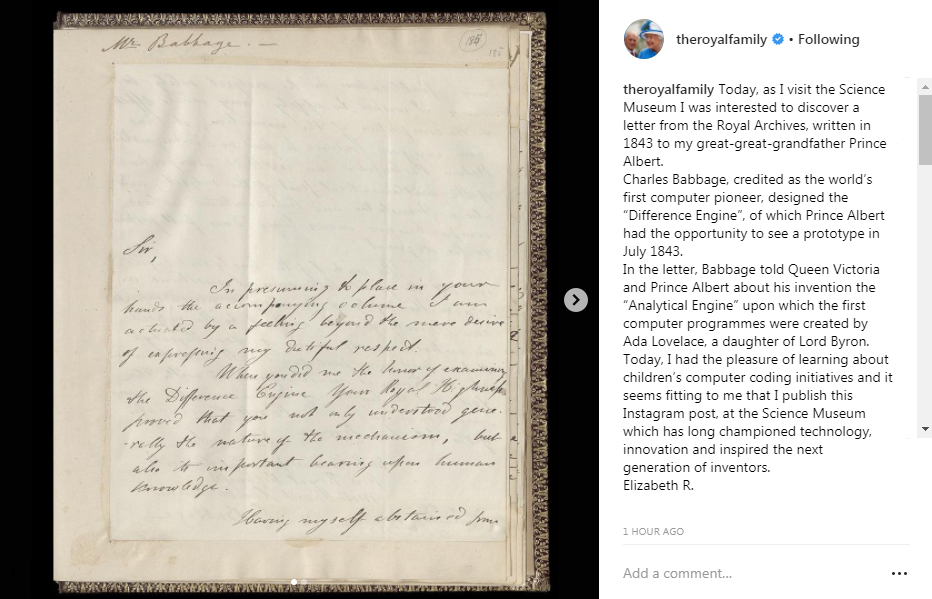 Mr Babbage. —
185
185
Sir,
In presuming to place in your
hands the accompanying volume I am
actuated by a feeling beyond the mere desire
of expressing my dutiful respect.
When you did me the honor of examining
the Difference Engine Your Royal Highness
proved that you not only understood gene-
-rally the nature of the mechanism, but
also its important bearing upon human
knowledge.
Having myself abstained from
theroyalfamily • Following
theroyalfamily Today, as I visit the Science
Museum I was interested to discover a
letter from the Royal Archives, written in
1843 to my great-great-grandfather Prince
Albert.
Charles Babbage, credited as the world’s
first computer pioneer, designed the
“Difference Engine”, of which Prince Albert
had the opportunity to see a prototype in
July 1843.
In the letter, Babbage told Queen Victoria
and Prince Albert about his invention the
“Analytical Engine” upon which the first
computer programmes were created by
Ada Lovelace, a daughter of Lord Byron.
Today, I had the pleasure of learning about
children’s computer coding initiatives and it
seems fitting to me that I publish this
Instagram post, at the Science Museum
which has long championed technology,
innovation and inspired the next
generation of inventors.
Elizabeth R.
1 HOUR AGO
Add a comment...